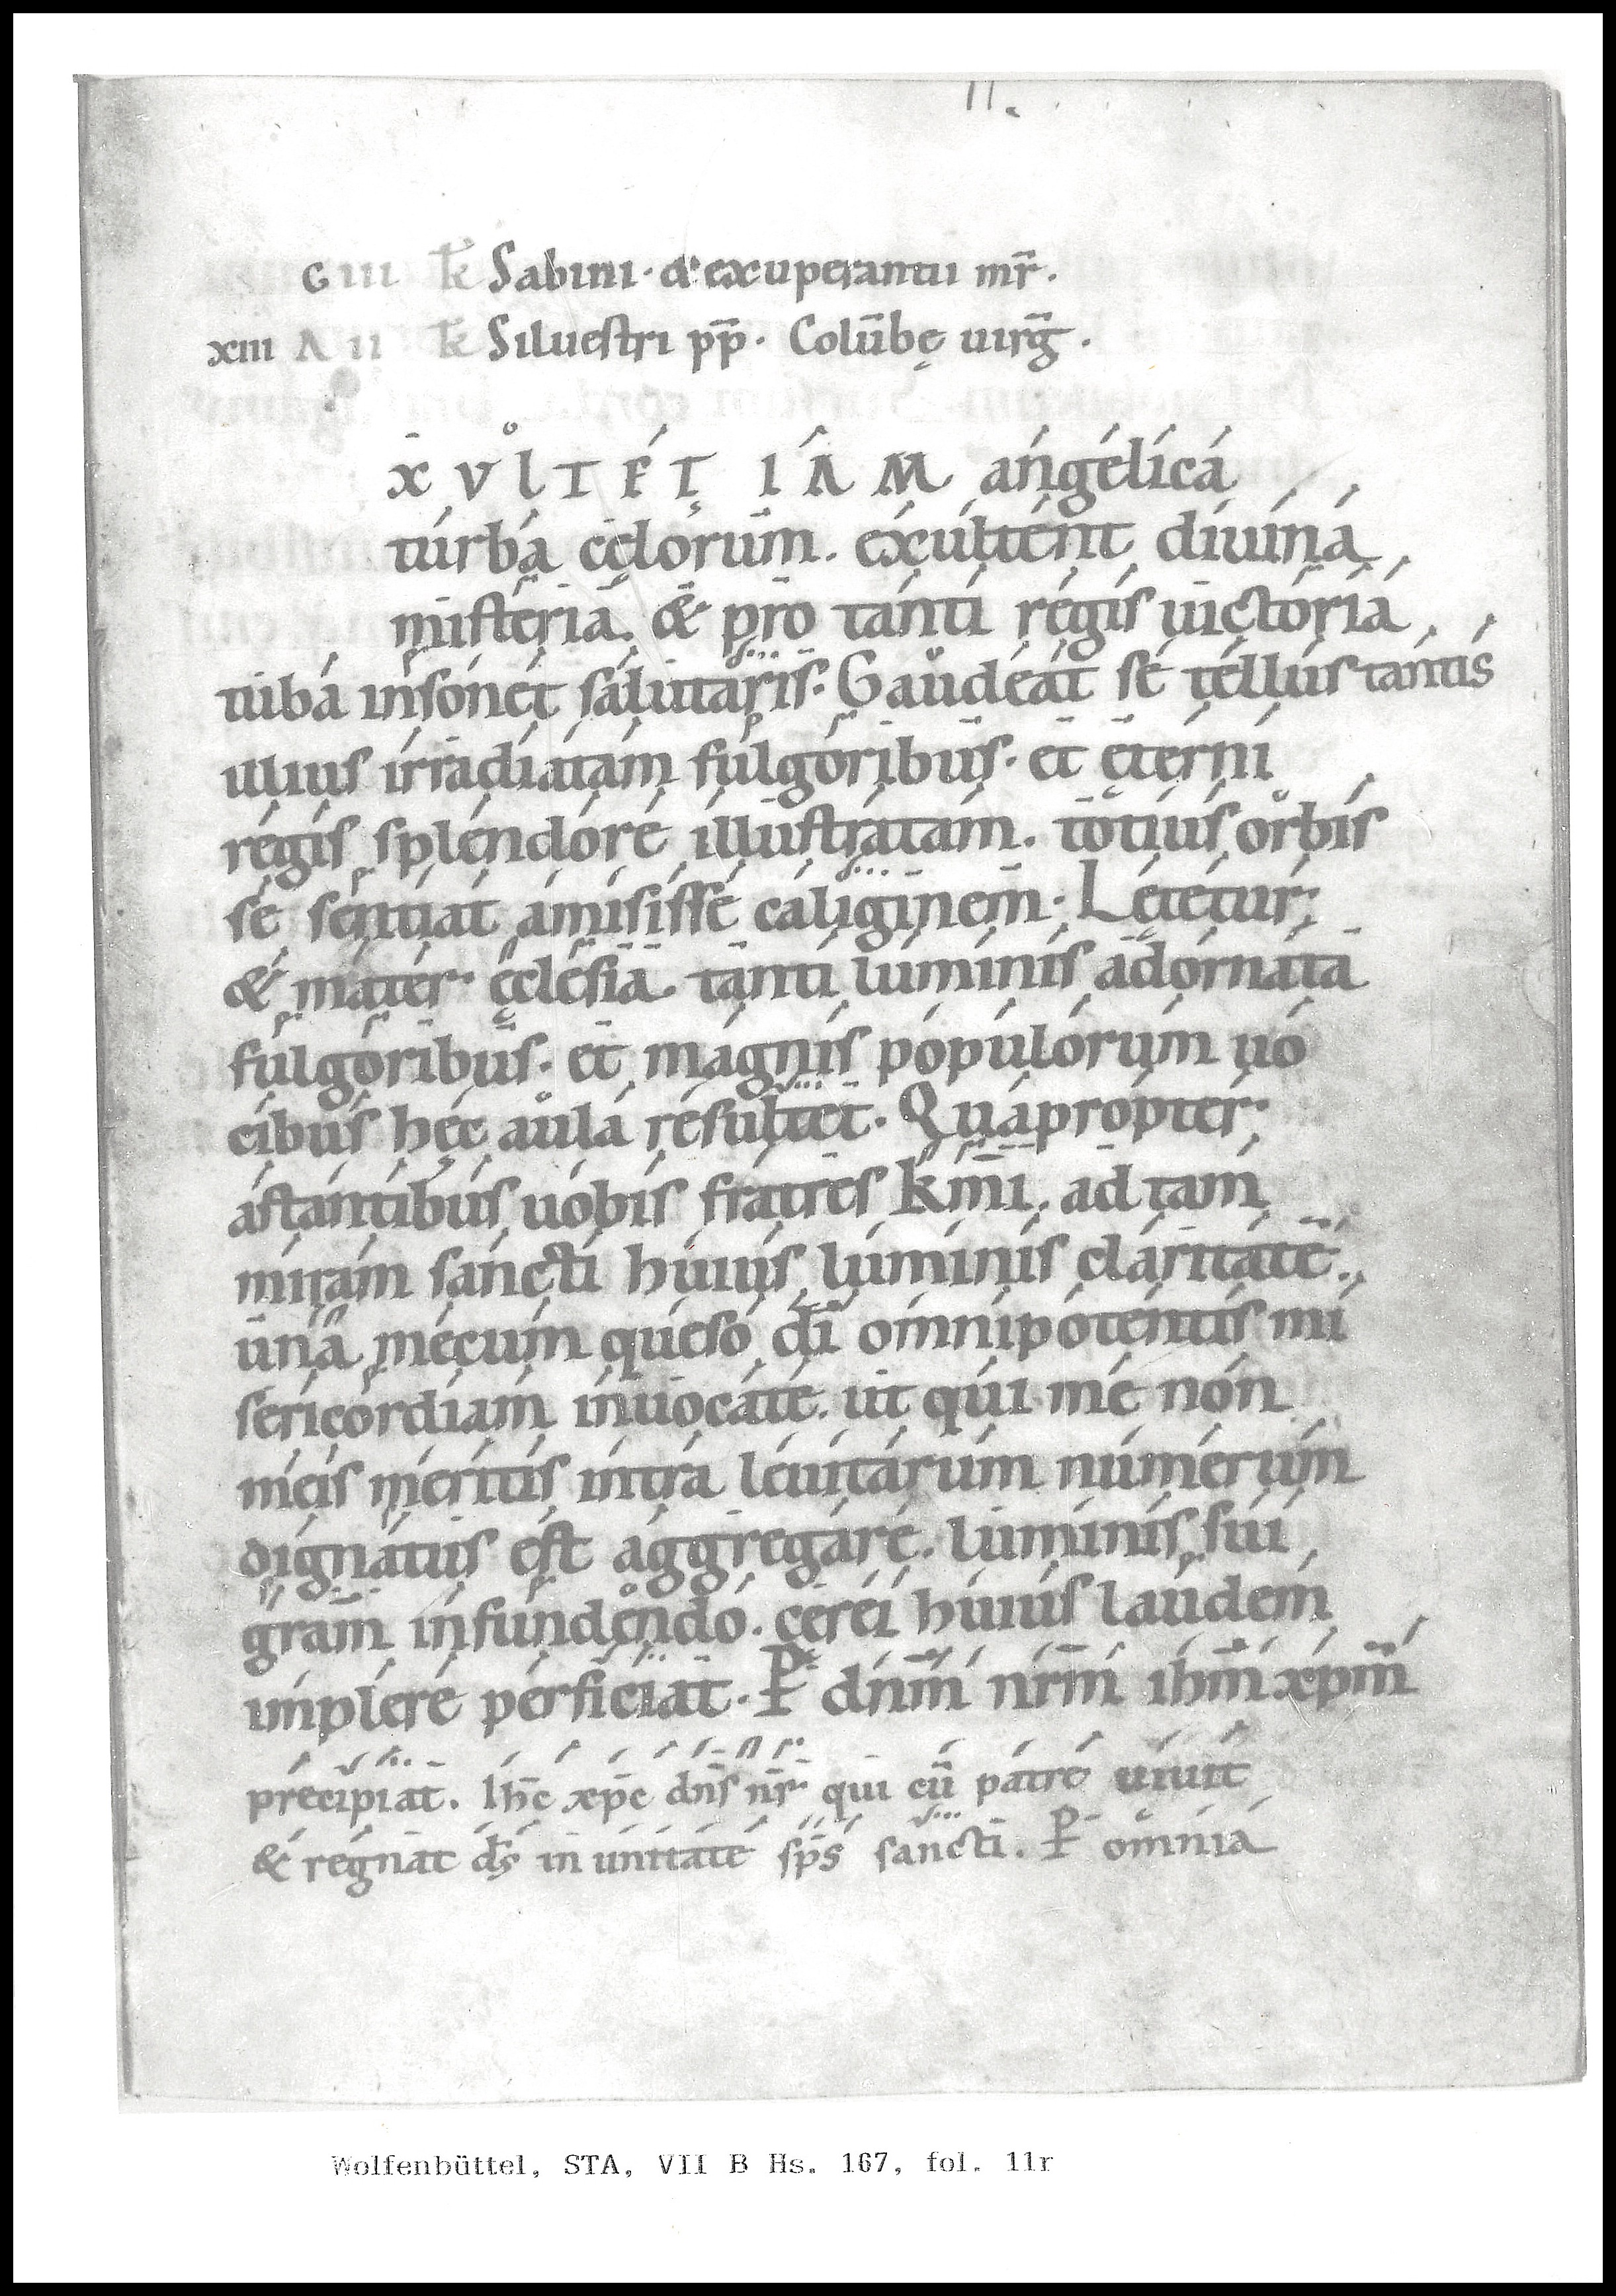 11.
G III kl Sabini · & exuperantii mr̄.
XIII A II kl Siluestri pp̄ · Colūbę uirḡ.
XVLTET IAM angelica
turba cęlorum. exultent diuina
misteria. & pro tanti regis uictoria
tuba insonet salutaris. Gaudeat se tellus tantis
illius irradiatam fulgoribus · et ęterni
regis splendore illustratam. totius orbis
se sentiat amisisse caliginem. Lętetur
& mater ęcclesia. tanti luminis adornata
fulgoribus · et magnis populorum uo
cibus hęc aula resultet. Quapropter
astantibus uobis fratres km̄i. ad tam
miram sancti huius luminis claritatē.
una mecum queso dī omnipotentis mi
sericordiam inuocate. ut qui me non
meis meritis intra leuitarum numerum
dignatus est aggregare. luminis sui
gram̄ infundendo. cerei huius laudem
implere perficiat. P dnm̄ nrm̄ ihm̄ xpm̄
precipiat. Ihc̄ xpc̄ dn̄s nr̄ qui cū patre uiuit
& regnat ds̄ in unitate sp̄s sancti. P omnia
Wolfenbüttel, STA, VII B Hs. 167, fol. 11r